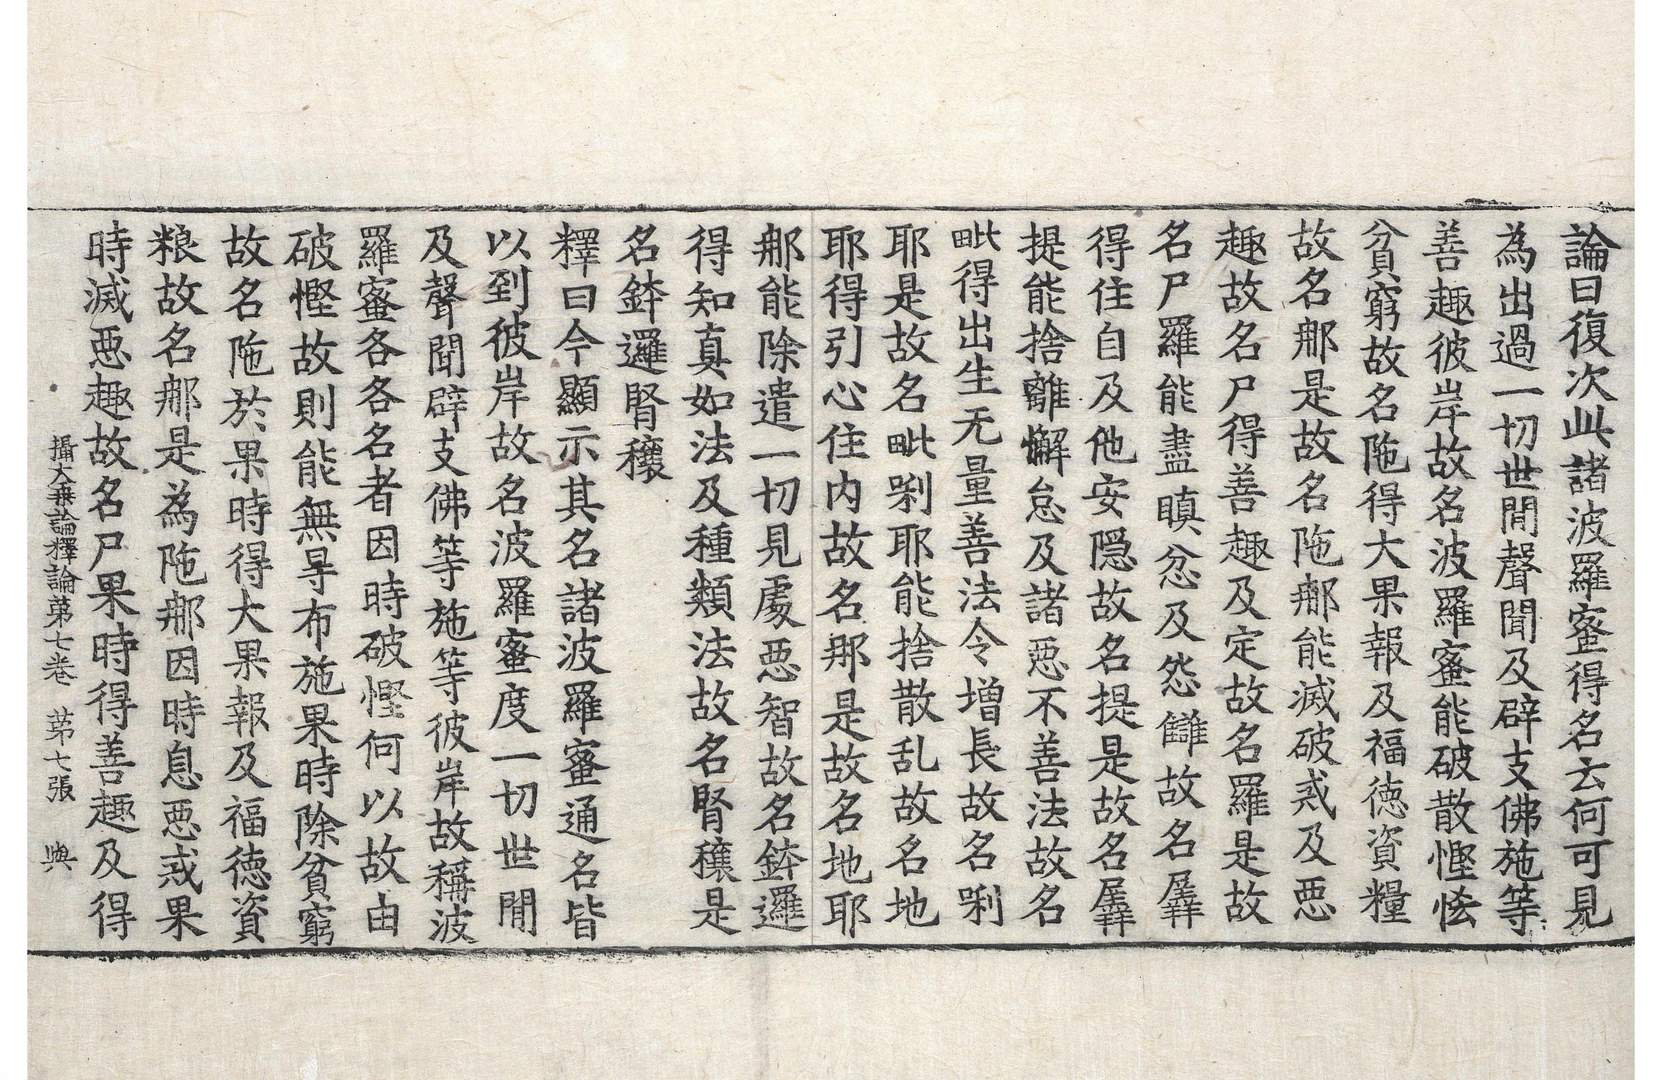 論曰復次此諸波羅蜜得名云何可見
為出過一切世間聲聞及辟支佛施等
善趣彼岸故名波羅蜜能破散慳悋
貧窮故名陁得大果報及福徳資糧
故名那是故名陁那能滅破戒及惡
趣故名尸得善趣及定故名羅是故
名尸羅能盡瞋忿及怨讎故名羼
得住自及他安隱故名提是故名羼
提能捨離懈怠及諸惡不善法故名
毗得出生无量善法令增長故名梨
耶是故名毗梨耶能捨散乱故名地
耶得引心住内故名那是故名地耶
那能除遣一切見處惡智故名鉢邏
得知真如法及種類法故名腎穰是
名鉢邏腎穰
釋曰今顯示其名諸波羅蜜通名皆
以到彼岸故名波羅蜜度一切世間
及聲聞辟支佛等施等彼岸故稱波
羅蜜各各名者因時破慳何以故由
破慳故則能無㝵布施果時除貧窮
故名陁於果時得大果報及福徳資
粮故名那是為陁那因時息惡戒果
時滅惡趣故名尸果時得善趣及得
攝大乗論釋論苐七巻 苐七張 與